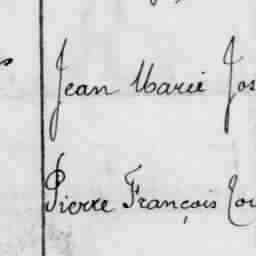 Jean Marie Jos
Pierre François